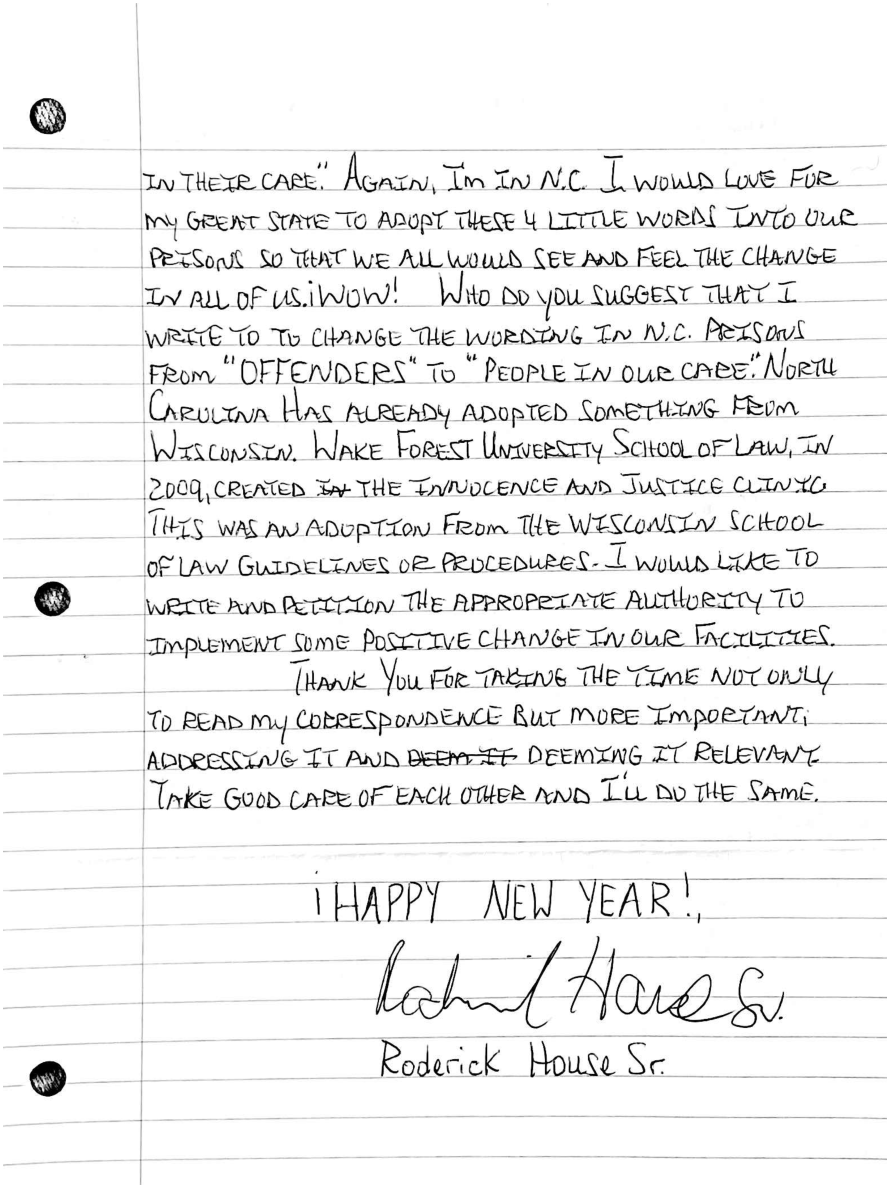 IN THEIR CARE." AGAIN, I'M IN N.C. I WOULD LOVE FOR
MY GREAT STATE TO ADOPT THESE 4 LITTLE WORDS INTO OUR
PRISONS SO THAT WE ALL WOULD SEE AND FEEL THE CHANGE
IN ALL OF US. ¡WOW! WHO DO YOU SUGGEST THAT I
WRITE TO TO CHANGE THE WORDING IN N.C. PRISONS
FROM "OFFENDERS" TO "PEOPLE IN OUR CARE." NORTH
CAROLINA HAS ALREADY ADOPTED SOMETHING FROM
WISCONSIN. WAKE FOREST UNIVERSITY SCHOOL OF LAW, IN
2009, CREATED IN THE INNOCENCE AND JUSTICE CLINIC
THIS WAS AN ADOPTION FROM THE WISCONSIN SCHOOL
OF LAW GUIDELINES OR PROCEDURES. I WOULD LIKE TO
WRITE AND PETITION THE APPROPRIATE AUTHORITY TO
IMPLEMENT SOME POSITIVE CHANGE IN OUR FACILITIES.
THANK YOU FOR TAKING THE TIME NOT ONLY
TO READ MY CORRESPONDENCE BUT MORE IMPORTANT;
ADDRESSING IT AND DEEM IT DEEMING IT RELEVANT.
TAKE GOOD CARE OF EACH OTHER AND I'LL DO THE SAME.
¡HAPPY NEW YEAR!,
Roderick House Sr.
Roderick House Sr.